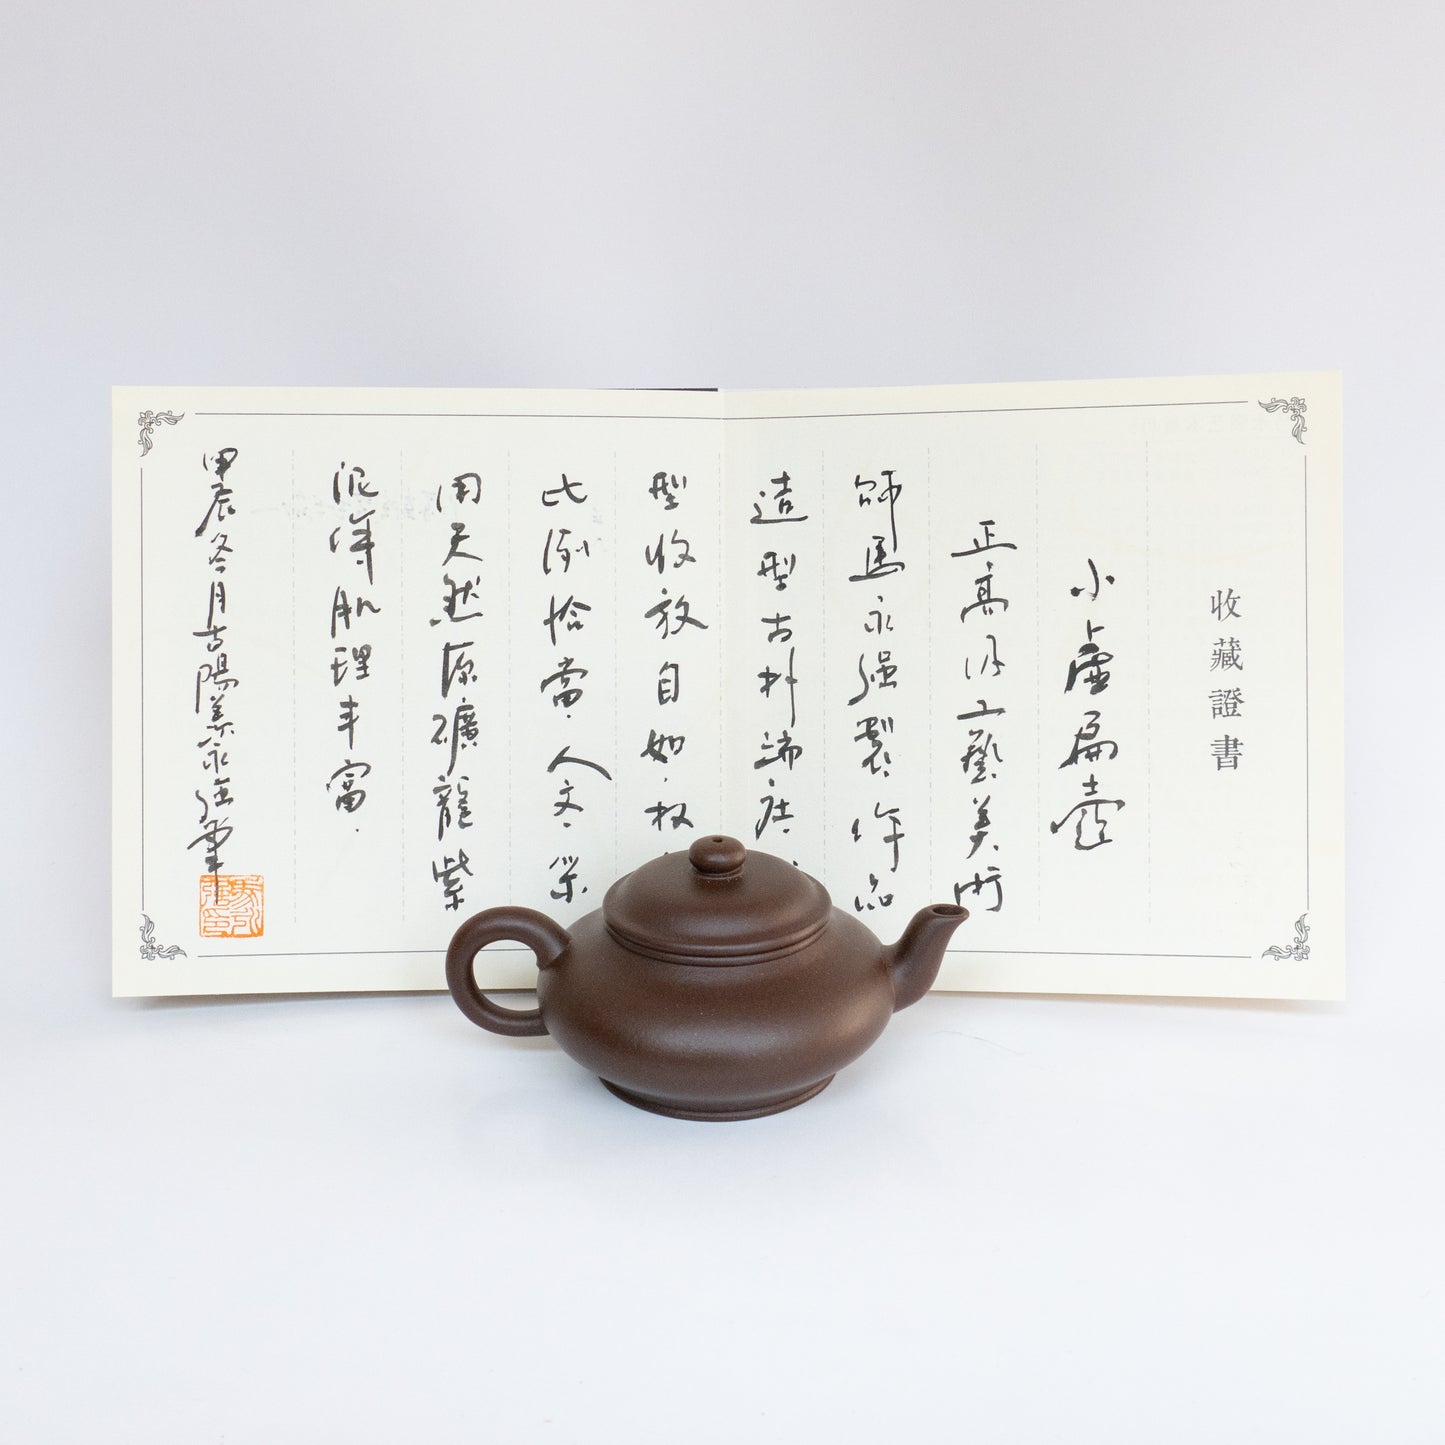 收藏證書
小虛扁壺
正高級工藝美術
師馬永强製作品
造型古朴端庄
型收放自如.
比例恰當.人文.
用天然原礦龍紫
泥.肌理丰富.
甲辰冬月古陽羡永强筆